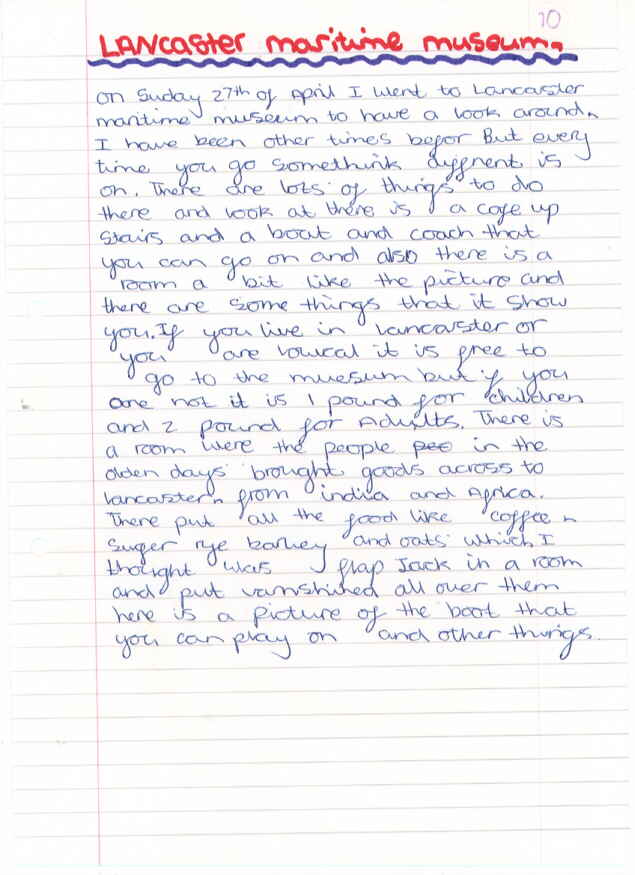 10
LANcaster maritime museum.
On Suday 27th of April I went to Lancaster
maritime museum to have a look around.
I have been other times befor But every
time you go somethink dyffnent is
on. There are lots of things to do
there and look at there is a cafe up
stairs and a boat and coach that
you can go on and also there is a
room a bit like the picture and
there are some things that it show
you. If you live in lancaster or
you are lowcal it is free to
go to the muesum but if you
are not it is 1 pound for children
and 2 pound for Adults. There is
a room were the people in the
olden days brought goods across to
lancaster, from india and Africa.
There put all the food like coffee,
suger rye barley and oats which I
thought was flap Jack in a room
and put varnshined all over them
here is a picture of the boat that
you can play on and other things.